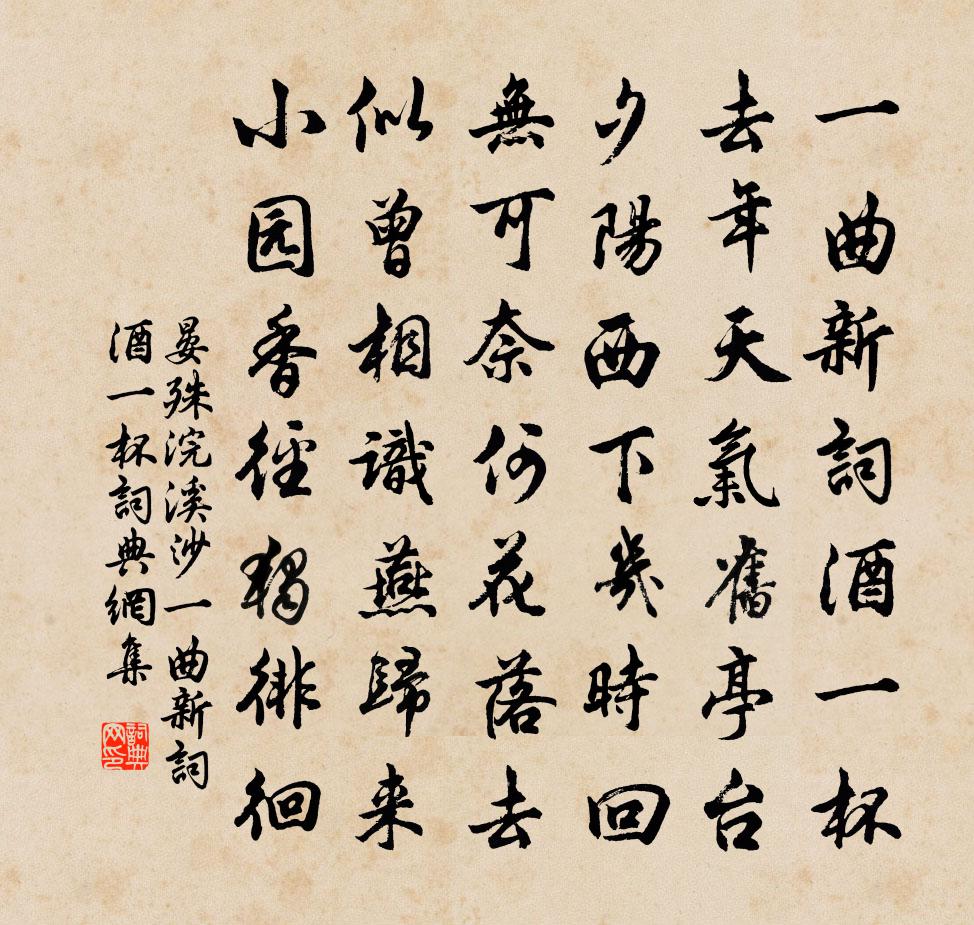 一曲新詞酒一杯
去年天氣舊亭台
夕陽西下幾時回
無可奈何花落去
似曾相識燕歸来
小园香徑獨徘徊
晏殊浣溪沙一曲新詞
酒一杯詞典網集
詞典
网印